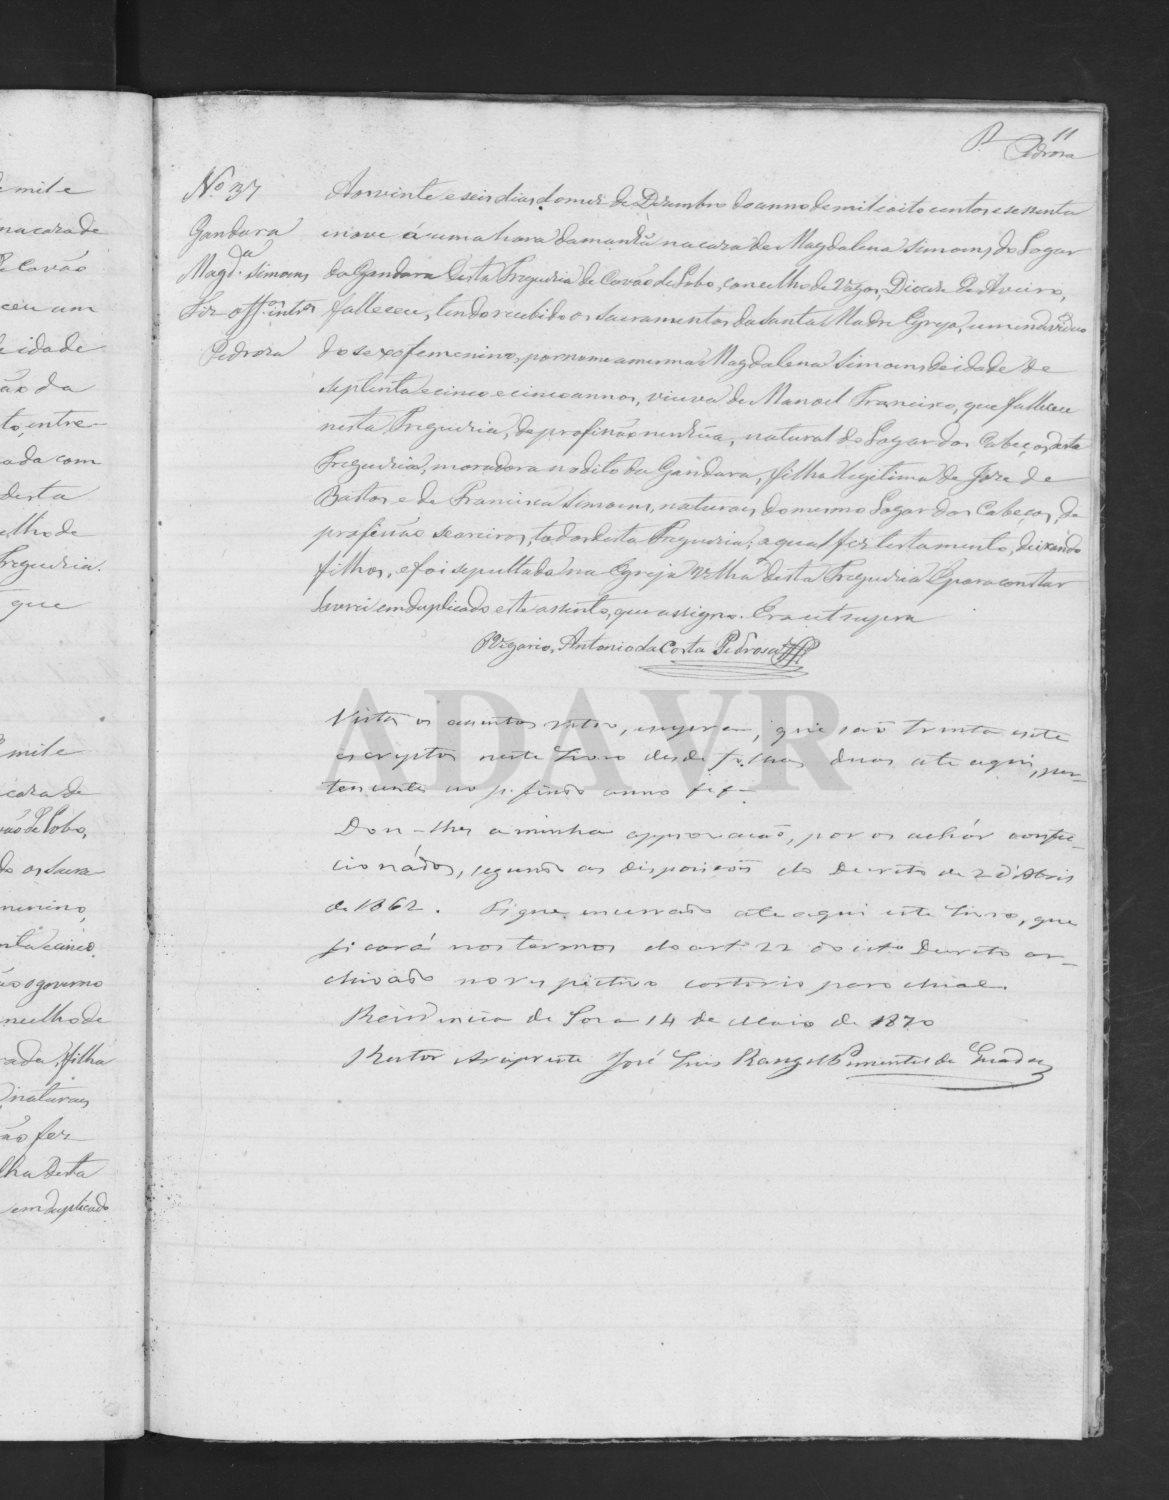 11
Pedrosa
No 37
Gandara
Magd.a Simoens
Fiz off.os inteiros
Pedrosa
Aos vinte e seis dias, do mez de Dezembro do anno de mil e oito centos e sessenta
e nove á uma hora da manhã na caza de Magdalena Simoens, do Logar
da Gandara desta Freguezia de Covão do Lobo, concelho de Vagos, Diocese de Aveiro,
falleceu, tendo recebido os sacramentos da Santa Madre Egreja, um individuo
do sexo femenino, por nome a mesma Magdalena Simoens, de idade de
septenta e cinco e cinco annos, viuva de Manoel Francisco, que falleceu
nesta Freguezia, de profissão nenhũa, natural do Logar dos Cabeços, desta
Freguezia, moradora no dito da Gandara, filha legitima de Joze de
Bastos e de Francisca Simoens, naturaes do mesmo Logar dos Cabeços, de
profissão seareiros, todos desta Freguezia; a qual fez testamento, deixando
filhos, e foi sepultada na Egreja Velha desta Freguezia. E para constar
lavrei em duplicado este assento, que assigno. Era ut supra
O Vigario, Antonio da Costa Pedrosa
Vistos os assentos retro, e supra, que são trinta e sete
escriptos neste Livro desde folhas duas ate aqui, per-
tencentes ao p. findo anno
Dou-lhes a minha approvação, por os achár confec-
cionádos, segundo as disposicões do Decreto de 2 d'Abril
de 1862. Fique encerrado ate aqui este Livro, que
ficará nos termos do art.o 22 do cit.o Decreto ar-
chivado no respectivo cartorio parochial.
Residencia de Soza 14 de Maio de 1870
O Reitor Arcipreste José Luis Rangel Pimentel de
e mil e
na caza de
Covão
ceu um
e idade
ão da
to, entre-
ada com
desta
elho de
Freguezia.
que
mil e
caza de
vão do Lobo,
do os Sacra
menino,
nta e cinco
ão o governo
ncelho de
rada, filha
naturaes
ão fez
lha desta
em duplicado
ADAVR